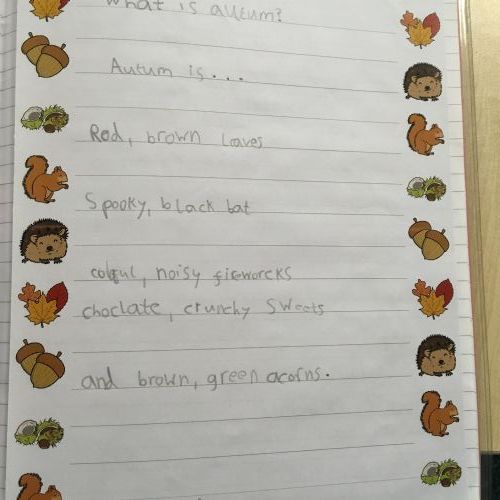 What is autum?
Autum is...
Red, brown leaves
Spooky, black bat
colful, noisy fireworcks
choclate, crunchy sweets
and brown, green acorns.